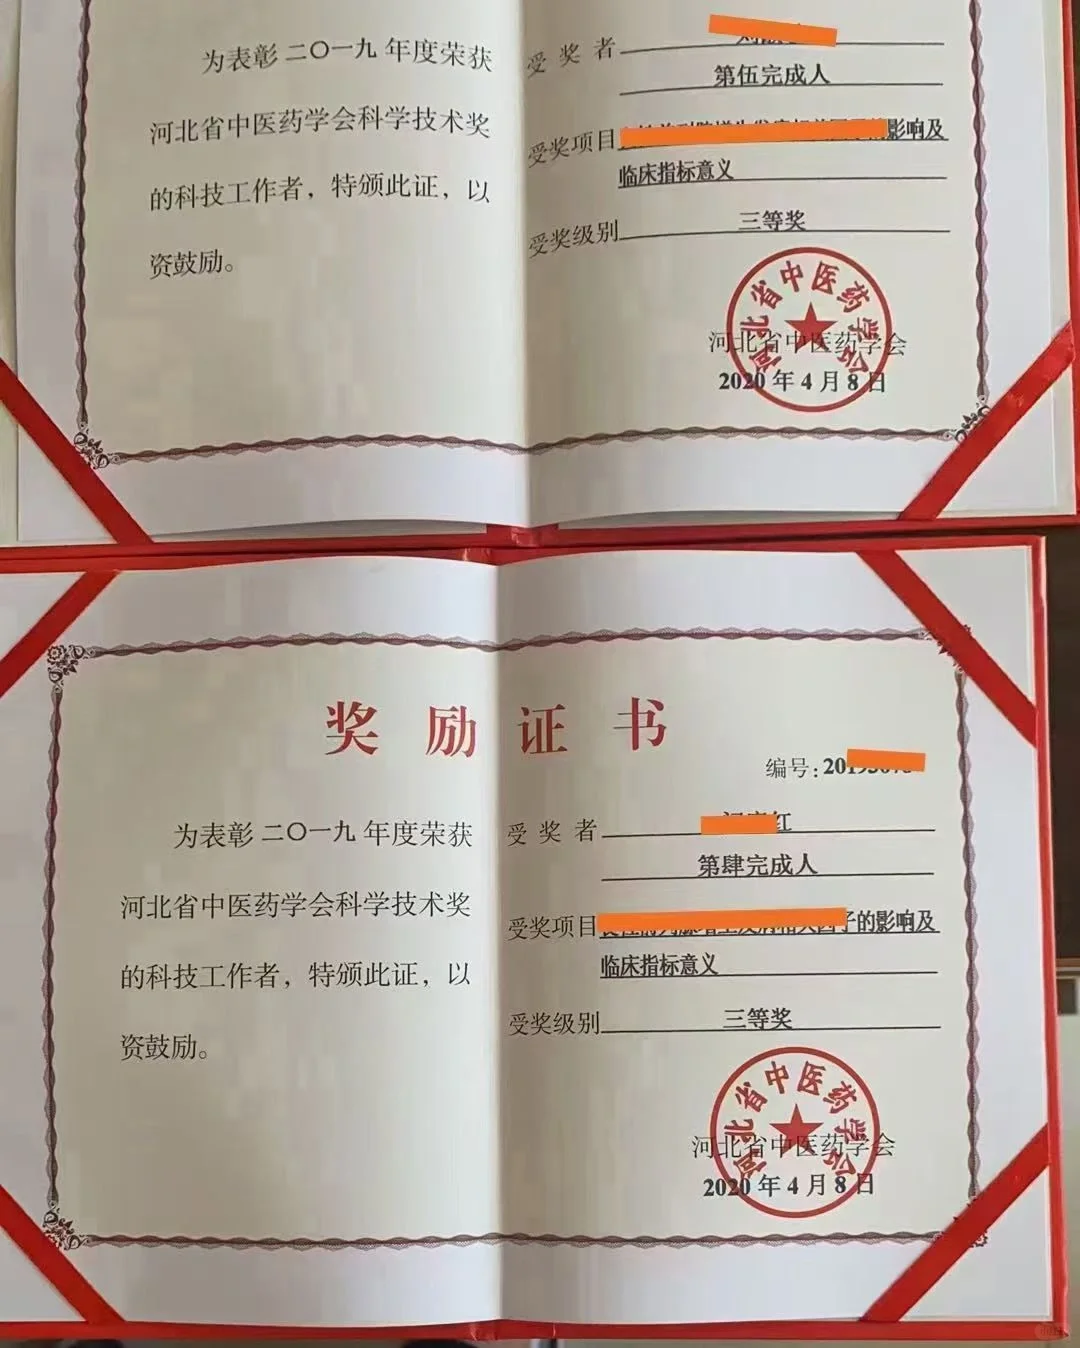 为表彰二〇一九年度荣获
河北省中医药学会科学技术奖
的科技工作者，特颁此证，以
资鼓励。
受奖者
第伍完成人
受奖项目 影响及
临床指标意义
受奖级别 三等奖
河北省中医药学会
河北省中医药学会
2020年4月8日
奖励证书
编号：201
为表彰二〇一九年度荣获
河北省中医药学会科学技术奖
的科技工作者，特颁此证，以
资鼓励。
受奖者 红
第肆完成人
受奖项目 子的影响及
临床指标意义
受奖级别 三等奖
河北省中医药学会
河北省中医药学会
2020年4月8日